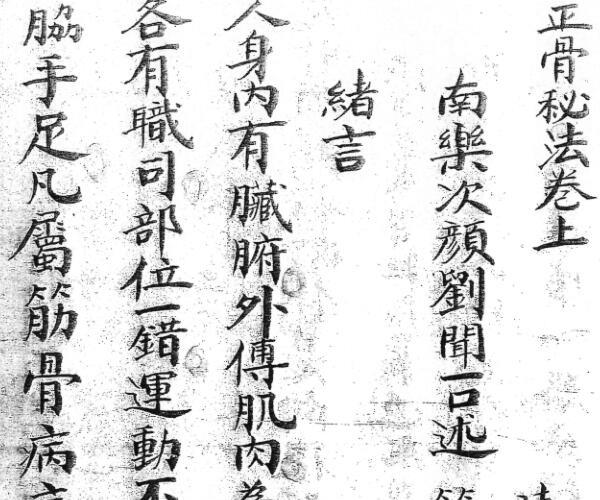 正骨秘法卷上
南樂次顏劉聞一口述
緒言
人身內有臟腑外傅肌肉
各有職司部位一錯運動不
脇手足凡屬筋骨病